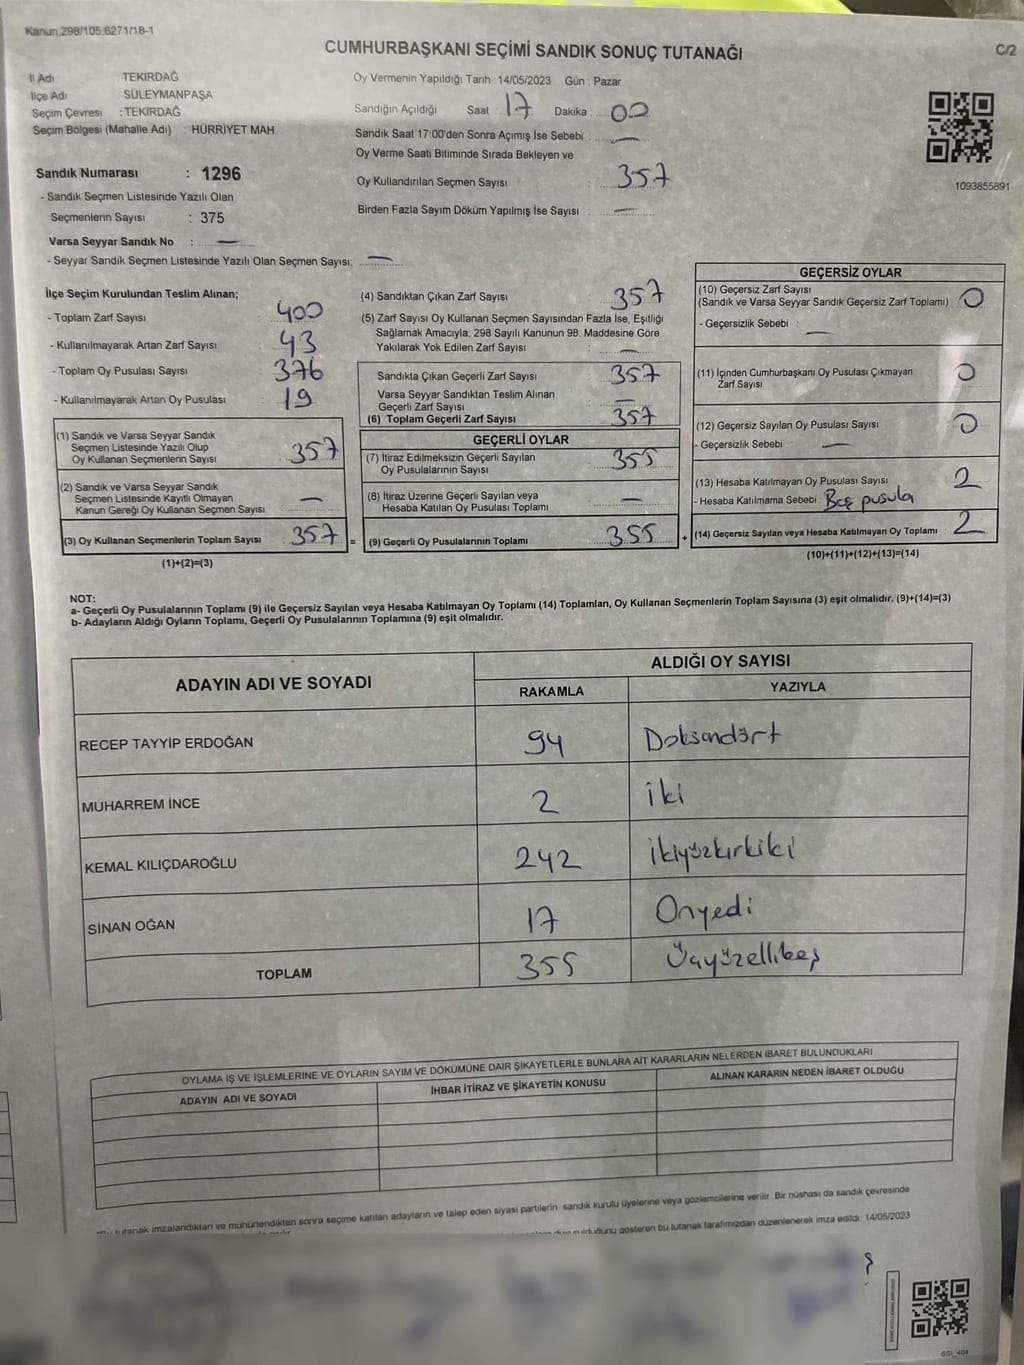 Kanun:298/105,6271/18-1
CUMHURBAŞKANI SEÇİMİ SANDIK SONUÇ TUTANAĞI
C/2
İl Adı TEKİRDAĞ
İlçe Adı SÜLEYMANPAŞA
Seçim Çevresi : TEKİRDAĞ
Seçim Bölgesi (Mahalle Adı) : HÜRRİYET MAH.
Sandık Numarası : 1296
- Sandık Seçmen Listesinde Yazılı Olan
Seçmenlerin Sayısı : 375
Varsa Seyyar Sandık No : —
- Seyyar Sandık Seçmen Listesinde Yazılı Olan Seçmen Sayısı: —
Oy Vermenin Yapıldığı Tarih : 14/05/2023 Gün : Pazar
Sandığın Açıldığı Saat : 17 Dakika : 00
Sandık Saat 17:00'den Sonra Açımış İse Sebebi : —
Oy Verme Saati Bitiminde Sırada Bekleyen ve
Oy Kullandırılan Seçmen Sayısı : 357
Birden Fazla Sayım Döküm Yapılmış İse Sayısı : —
1093855891
İlçe Seçim Kurulundan Teslim Alınan;
- Toplam Zarf Sayısı : 400
- Kullanılmayarak Artan Zarf Sayısı : 43
- Toplam Oy Pusulası Sayısı : 376
- Kullanılmayarak Artan Oy Pusulası : 19
(1) Sandık ve Varsa Seyyar Sandık
Seçmen Listesinde Yazılı Olup
Oy Kullanan Seçmenlerin Sayısı : 357
(2) Sandık ve Varsa Seyyar Sandık
Seçmen Listesinde Kayıtlı Olmayan
Kanun Gereği Oy Kullanan Seçmen Sayısı : —
(3) Oy Kullanan Seçmenlerin Toplam Sayısı : 357 =
(1)+(2)=(3)
(4) Sandıktan Çıkan Zarf Sayısı : 357
(5) Zarf Sayısı Oy Kullanan Seçmen Sayısından Fazla İse, Eşitliği
Sağlamak Amacıyla, 298 Sayılı Kanunun 98. Maddesine Göre
Yakılarak Yok Edilen Zarf Sayısı : —
Sandıkta Çıkan Geçerli Zarf Sayısı : 357
Varsa Seyyar Sandıktan Teslim Alınan
Geçerli Zarf Sayısı : —
(6) Toplam Geçerli Zarf Sayısı : 357
GEÇERLİ OYLAR
(7) İtiraz Edilmeksizin Geçerli Sayılan
Oy Pusulalarının Sayısı : 355
(8) İtiraz Üzerine Geçerli Sayılan veya
Hesaba Katılan Oy Pusulası Toplamı : —
(9) Geçerli Oy Pusulalarının Toplamı : 355 +
GEÇERSİZ OYLAR
(10) Geçersiz Zarf Sayısı
(Sandık ve Varsa Seyyar Sandık Geçersiz Zarf Toplamı) 0
- Geçersizlik Sebebi : —
(11) İçinden Cumhurbaşkanı Oy Pusulası Çıkmayan
Zarf Sayısı 0
(12) Geçersiz Sayılan Oy Pusulası Sayısı 0
- Geçersizlik Sebebi : —
(13) Hesaba Katılmayan Oy Pusulası Sayısı 2
- Hesaba Katılmama Sebebi Boş pusula
(14) Geçersiz Sayılan veya Hesaba Katılmayan Oy Toplamı 2
(10)+(11)+(12)+(13)=(14)
NOT:
a- Geçerli Oy Pusulalarının Toplamı (9) ile Geçersiz Sayılan veya Hesaba Katılmayan Oy Toplamı (14) Toplamları, Oy Kullanan Seçmenlerin Toplam Sayısına (3) eşit olmalıdır. (9)+(14)=(3)
b- Adayların Aldığı Oyların Toplamı, Geçerli Oy Pusulalarının Toplamına (9) eşit olmalıdır.
ADAYIN ADI VE SOYADI
ALDIĞI OY SAYISI
RAKAMLA YAZIYLA
RECEP TAYYİP ERDOĞAN 94 Doksandört
MUHARREM İNCE 2 iki
KEMAL KILIÇDAROĞLU 242 ikiyüzkırkiki
SİNAN OĞAN 17 Onyedi
TOPLAM 355 Üçyüzellibeş
OYLAMA İŞ VE İŞLEMLERİNE VE OYLARIN SAYIM VE DÖKÜMÜNE DAİR ŞİKAYETLERLE BUNLARA AİT KARARLARIN NELERDEN İBARET BULUNDUKLARI
ADAYIN ADI VE SOYADI İHBAR İTİRAZ VE ŞİKAYETİN KONUSU ALINAN KARARIN NEDEN İBARET OLDUĞU
tutanak imzalandıktan ve mühürlendikten sonra seçime katılan adayların ve talep eden siyasi partilerin sandık kurulu üyelerine veya gözlemcilerine verilir. Bir nüshası da sandık çevresinde
gösteren bu tutanak tarafımızdan düzenlenerek imza edildi. 14/05/2023